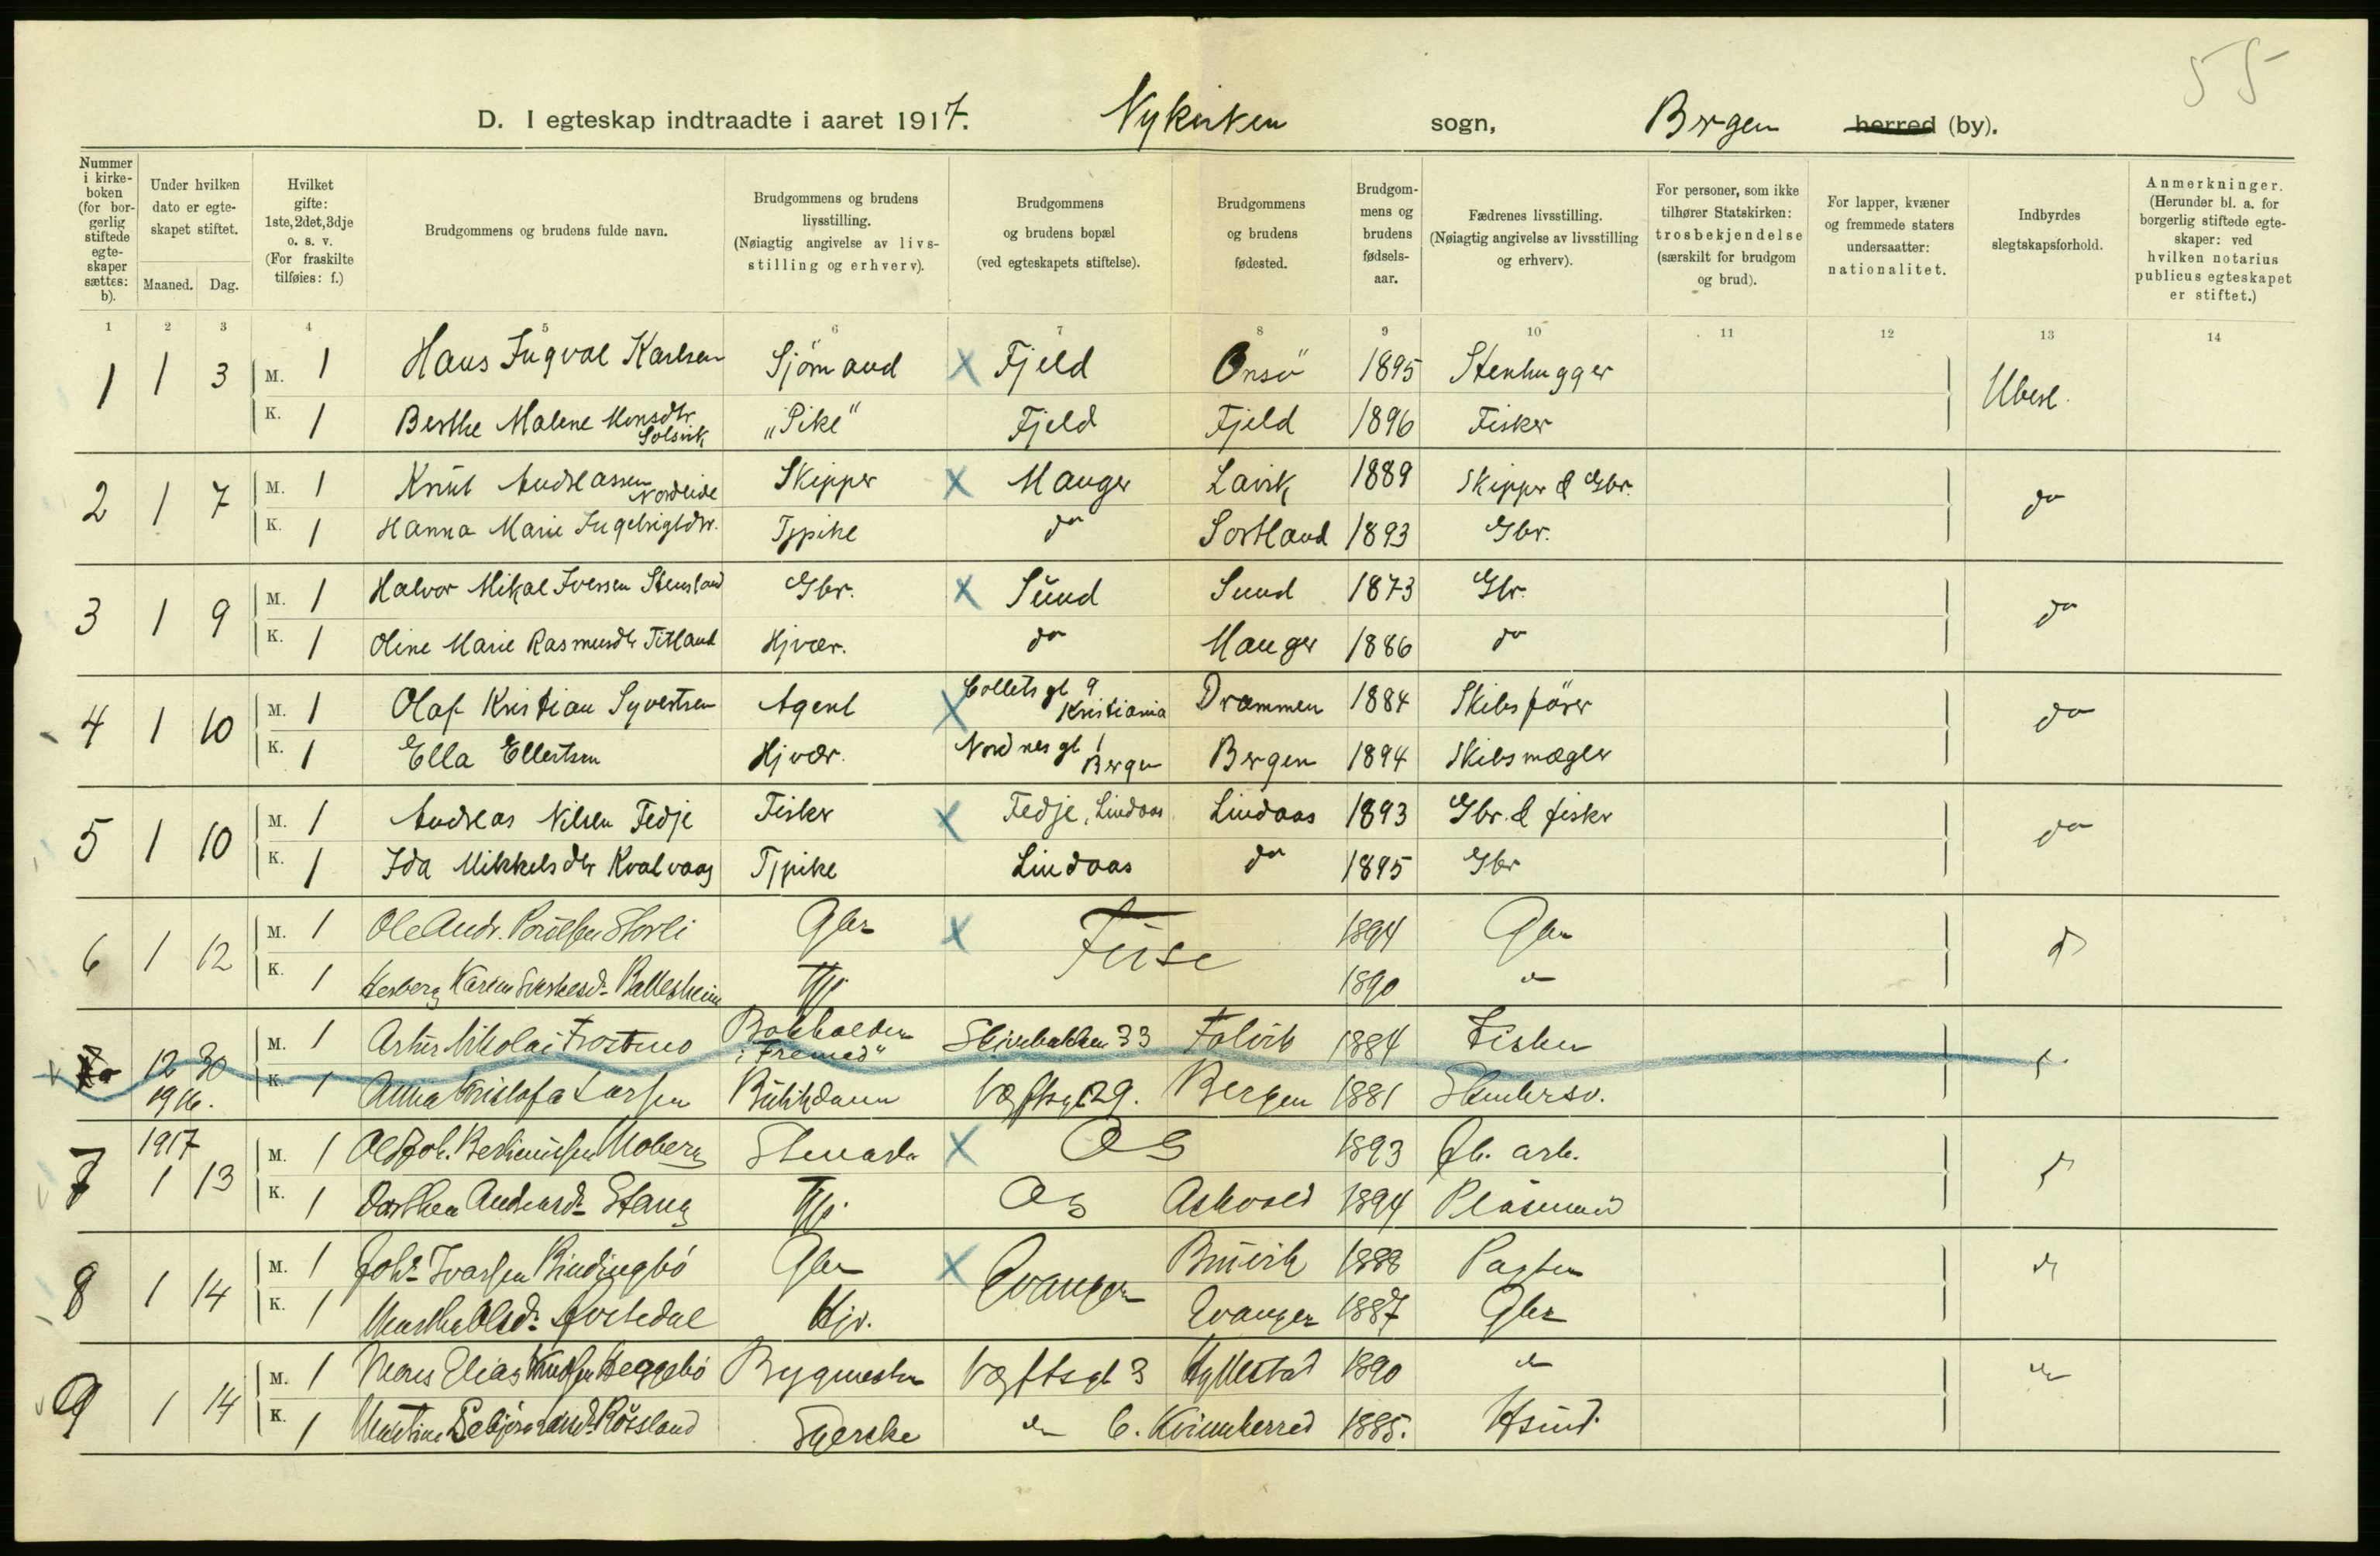 55
D. I egteskap indtraadte i aaret 1917. Nykirken sogn, Bergen herred (by).
Nummer i kirke-boken (for bor-gerlig stiftede egte-skaper sættes: b).
Under hvilken dato er egte-skapet stiftet.
Maaned. Dag.
Hvilket gifte: 1ste, 2det, 3dje o. s. v. (For fraskilte tilføies: f.)
Brudgommens og brudens fulde navn.
Brudgommens og brudens livsstilling. (Nøiagtig angivelse av livs-stilling og erhverv).
Brudgommens og brudens bopæl (ved egteskapets stiftelse).
Brudgommens og brudens fødested.
Brudgom-mens og brudens fødsels-aar.
Fædrenes livsstilling. (Nøiagtig angivelse av livsstilling og erhverv).
For personer, som ikke tilhører Statskirken: trosbekjendelse (særskilt for brudgom og brud).
For lapper, kvæner og fremmede staters undersaatter: nationalitet.
Indbyrdes slegtskapsforhold.
Anmerkninger. (Herunder bl. a. for borgerlig stiftede egte-skaper: ved hvilken notarius publicus egteskapet er stiftet.)
1 2 3 4 5 6 7 8 9 10 11 12 13 14
1 1 3 M. 1 Hans Ingval Karlsen Sjömand X Fjeld Onsö 1895 Stenhugger Ubesl.
K. 1 Berthe Malene Monsdtr. Solsvik "Pike" Fjeld Fjeld 1896 Fisker
2 1 7 M. 1 Knut Andreassen Nordeide Skipper X Manger Lavik 1889 Skipper & Gbr. do
K. 1 Hanna Marie Ingebrigtdtr. Tjpike do Sortland 1893 Gbr.
3 1 9 M. 1 Halvor Mikal Iversen Stensland Gbr. X Sund Sund 1873 Gbr. do
K. 1 Oline Marie Rasmusdtr Titland Hjvær. do Manger 1886 do
4 1 10 M. 1 Olaf Kristian Syvertsen Agent X Colletsgt 9 Kristiania Drammen 1884 Skibsfører do
K. 1 Ella Ellertsen Hjvær. Nordnesgt 1 Bergen Bergen 1894 Skibsmægler
5 1 10 M. 1 Andreas Nilsen Fedje Fisker X Fedje, Lindaas Lindaas 1893 Gbr. & fisker do
K. 1 Ida Mikkelsdtr Kvalvaag Tjpike Lindaas do 1895 Gbr
6 1 12 M. 1 Ole Andr. Poulsen Gbr X Fuse 1894 Gbr do
K. 1 Karine Tjp. 1890 do
12 30 M. 1 Nikolai Trostmo Bokholder i "Fremad" Skivebakken 33 1884 Fisker
1916. K. 1 Anna Kristofa Larsen Butikdame Vægtergt 29. Bergen 1881 
1917
7 1 13 M. 1 Moberg X Os 1893 
K. 1 Dorthea Andreasdr Stang Tjp. Os Askvold 1894 Pladsmand
8 1 14 M. 1 Johs Ivarsen Gbr X Evanger Bruvik 1888 do
K. 1 Martha Olsdr Hjv. Evanger 1887 Gbr
9 1 14 M. 1 Mons Elias Knudsen Heggebö Bygmester Vægtergt 3 Hyllestad 1890 do do
K. 1 Martine Røssland Syerske do Kvinnherred 1885. Hsmd.